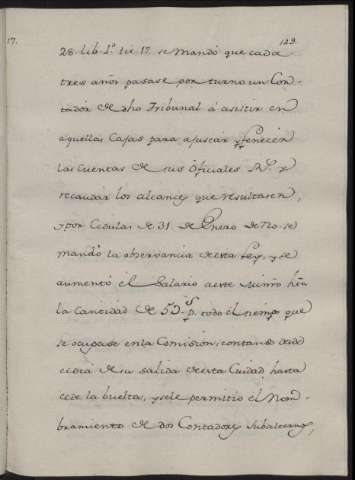 17.
129.
28. lib. 1º tit 17. se mandó que cada
tres años pasase por turno un Con-
tador de dho Tribunal á asistir en
aquellas Cajas para ajustar y fenecer
las cuentas de sus oficiales Rs. y
recaudar los alcances que resultasen,
y por Cedula de 31. de Enero de se
mandó la observancia de esta Ley, y se
aumentó el Salario a este Minro hta
la Cantidad de ps. todo el tiempo que
se ocupase en la Comision, contando desde
el dia de su salida de esta Ciudad hasta
el de la buelta, y se le permitió el Nom-
bramiento de dos Contadores Subalternos,